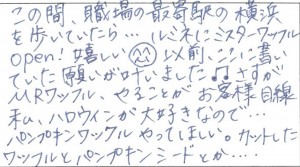 この間、職場の最寄駅の横浜
を歩いていたら… ルミネにミスターワッフル
open! 嬉しい 以前、ここに書い
ていた願いが叶いました♫ さすが
MRワッフル やることがお客様目線
私、ハロウィンが大好きなので‥‥
パンプキンワッフルやってほしい。カットした
ワッフルとパンプキンシードとか‥‥